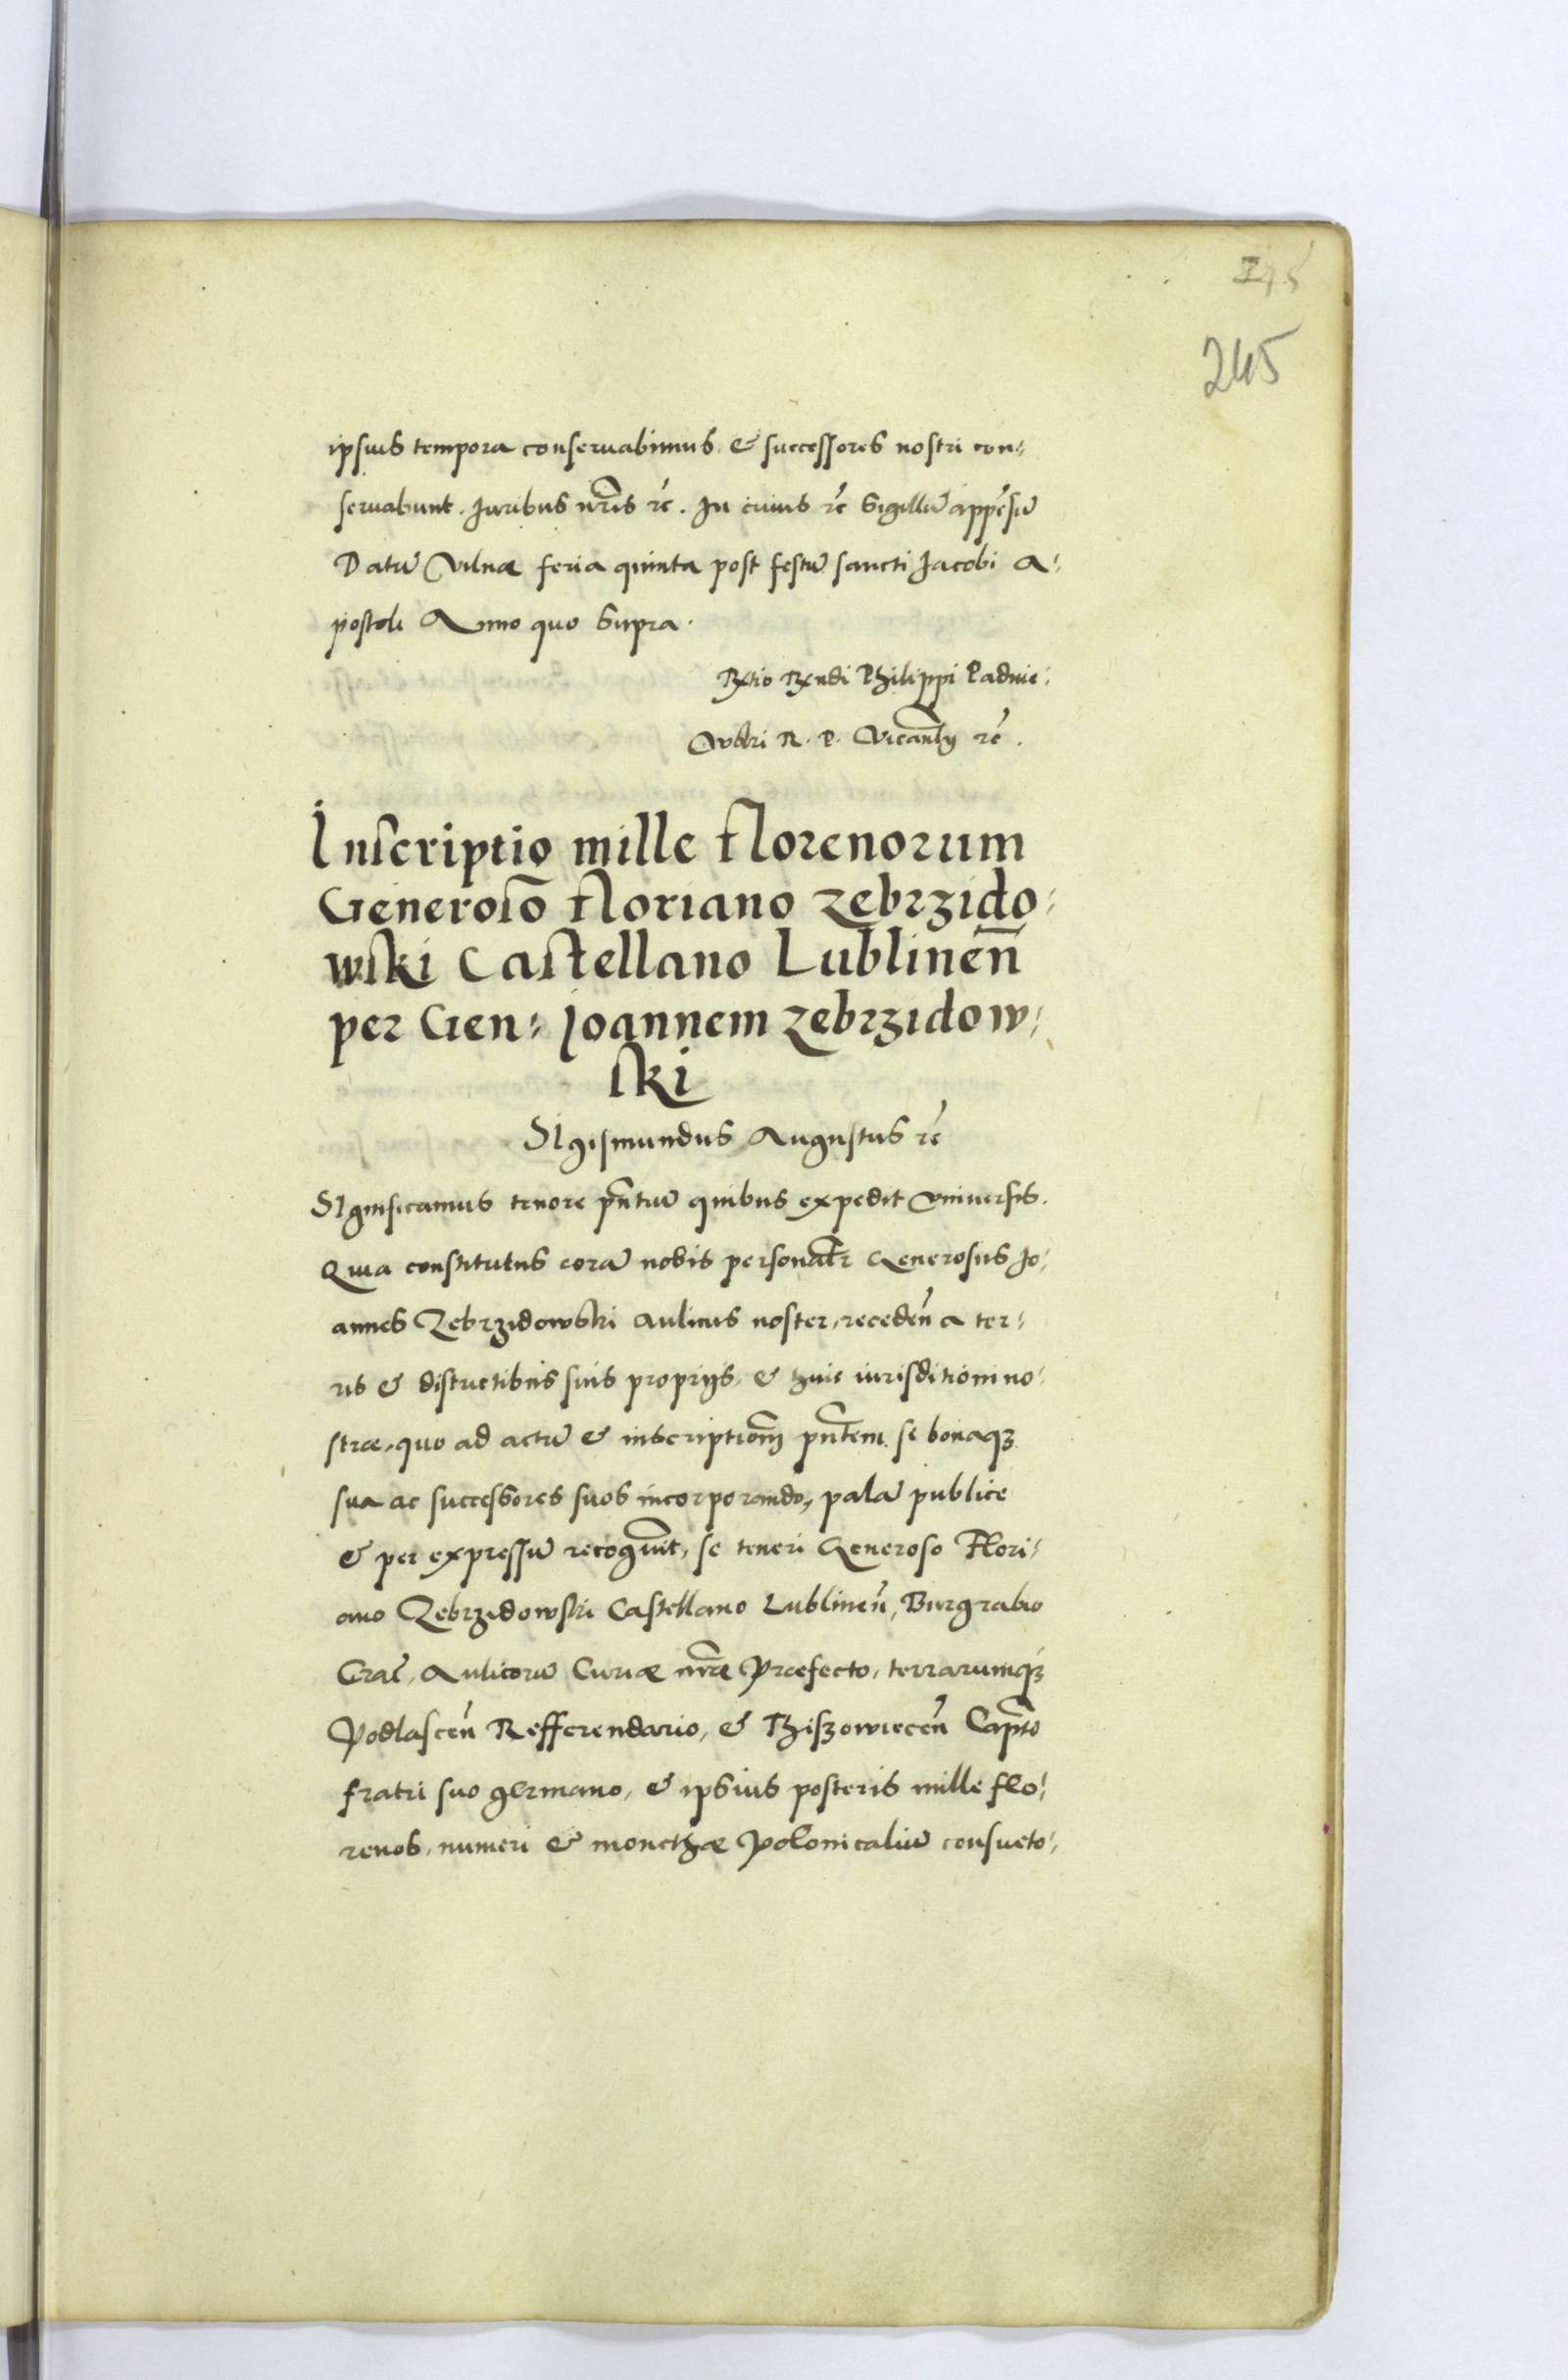 245
ipsius tempora conseruabimus & successores nostri con:
seruabunt. Iuribus nr̃is rc̃. In cuius rc̃ Sigillũ appẽsũ
Datũ Vilnæ feria quinta post festũ sancti Jacobi A:
postoli Anno quo Supra.
Rx̃tio Rx̃ndi Philippi Padnie:
wski R. P. Vicañlÿ rc̃.
Inscriptio mille florenorum
Generosõ floriano Zebrzido:
wski Castellano Lublineñ
per Gen: Joannem Zebrzidow:
ski
SIgismundus Augustus rc̃
SIgnificamus tenore pñtiũ quibus expedit vniuersis.
Quia constitutus corã nobis personalr̃ Generosus Jo:
annes Zebrzidowski Aulicus noster, recedeñ a ter:
ris & districtibus suis proprÿs, & huic iurisditioni no:
stræ, quo ad actũ & inscriptioñ pñtem se bonaqꝫ
sua ac successores suos incorporando, palã publice
& per expressũ recogũit, se teneri Generoso Flori:
ano Zebrzidowski Castellano Lublineñ, Burgrabio
Crac̃, Aulicorũ Curiæ nr̃æ Præfecto, terrarumqꝫ
Podlasceñ Refferendario, & Thiszowieceñ Capño
fratri suo germano, & ipsius posteris mille flo:
renos, numeri & monethæ Polonicaliũ consueto: